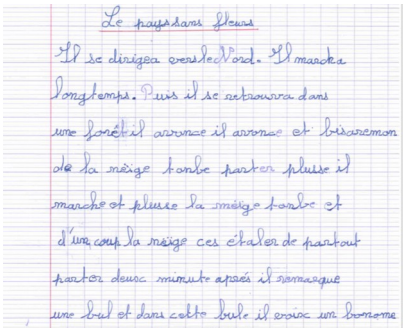 Le pays sans fleurs
Il se dirigea vers le Nord. Il marcha
longtemps. Puis il se retrouva dans
une forêt il avance il avance et bisaremon
de la nèige tonbe parter plusse il
marche et plusse la nèige tonbe et
d'un coup la nèige ces étaler de partout
parter deux minute aprés il remarque
une bul et dans cette bule il croix un bonome